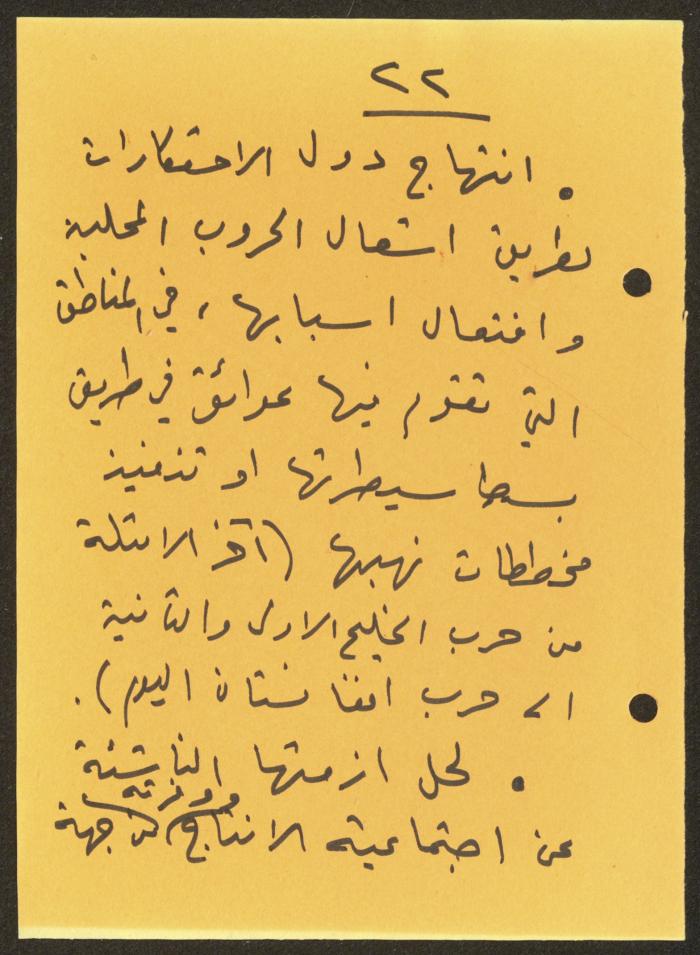 ٢٢
. انتهاج دول الاحتكارات
طريق اشعال الحروب المحلية
وافتعال اسبابها ، في المناطق
التي تقوم فيها عوائق في طريق
بسط سيطرتها او تنفيذ
مخططات نهبها (آخر الامثلة
من حرب الخليج الاولى والثانية
الى حرب افغانستان اليوم).
. لحل ازمتها الناشئة
عن اجتماعية الانتاج من جهة